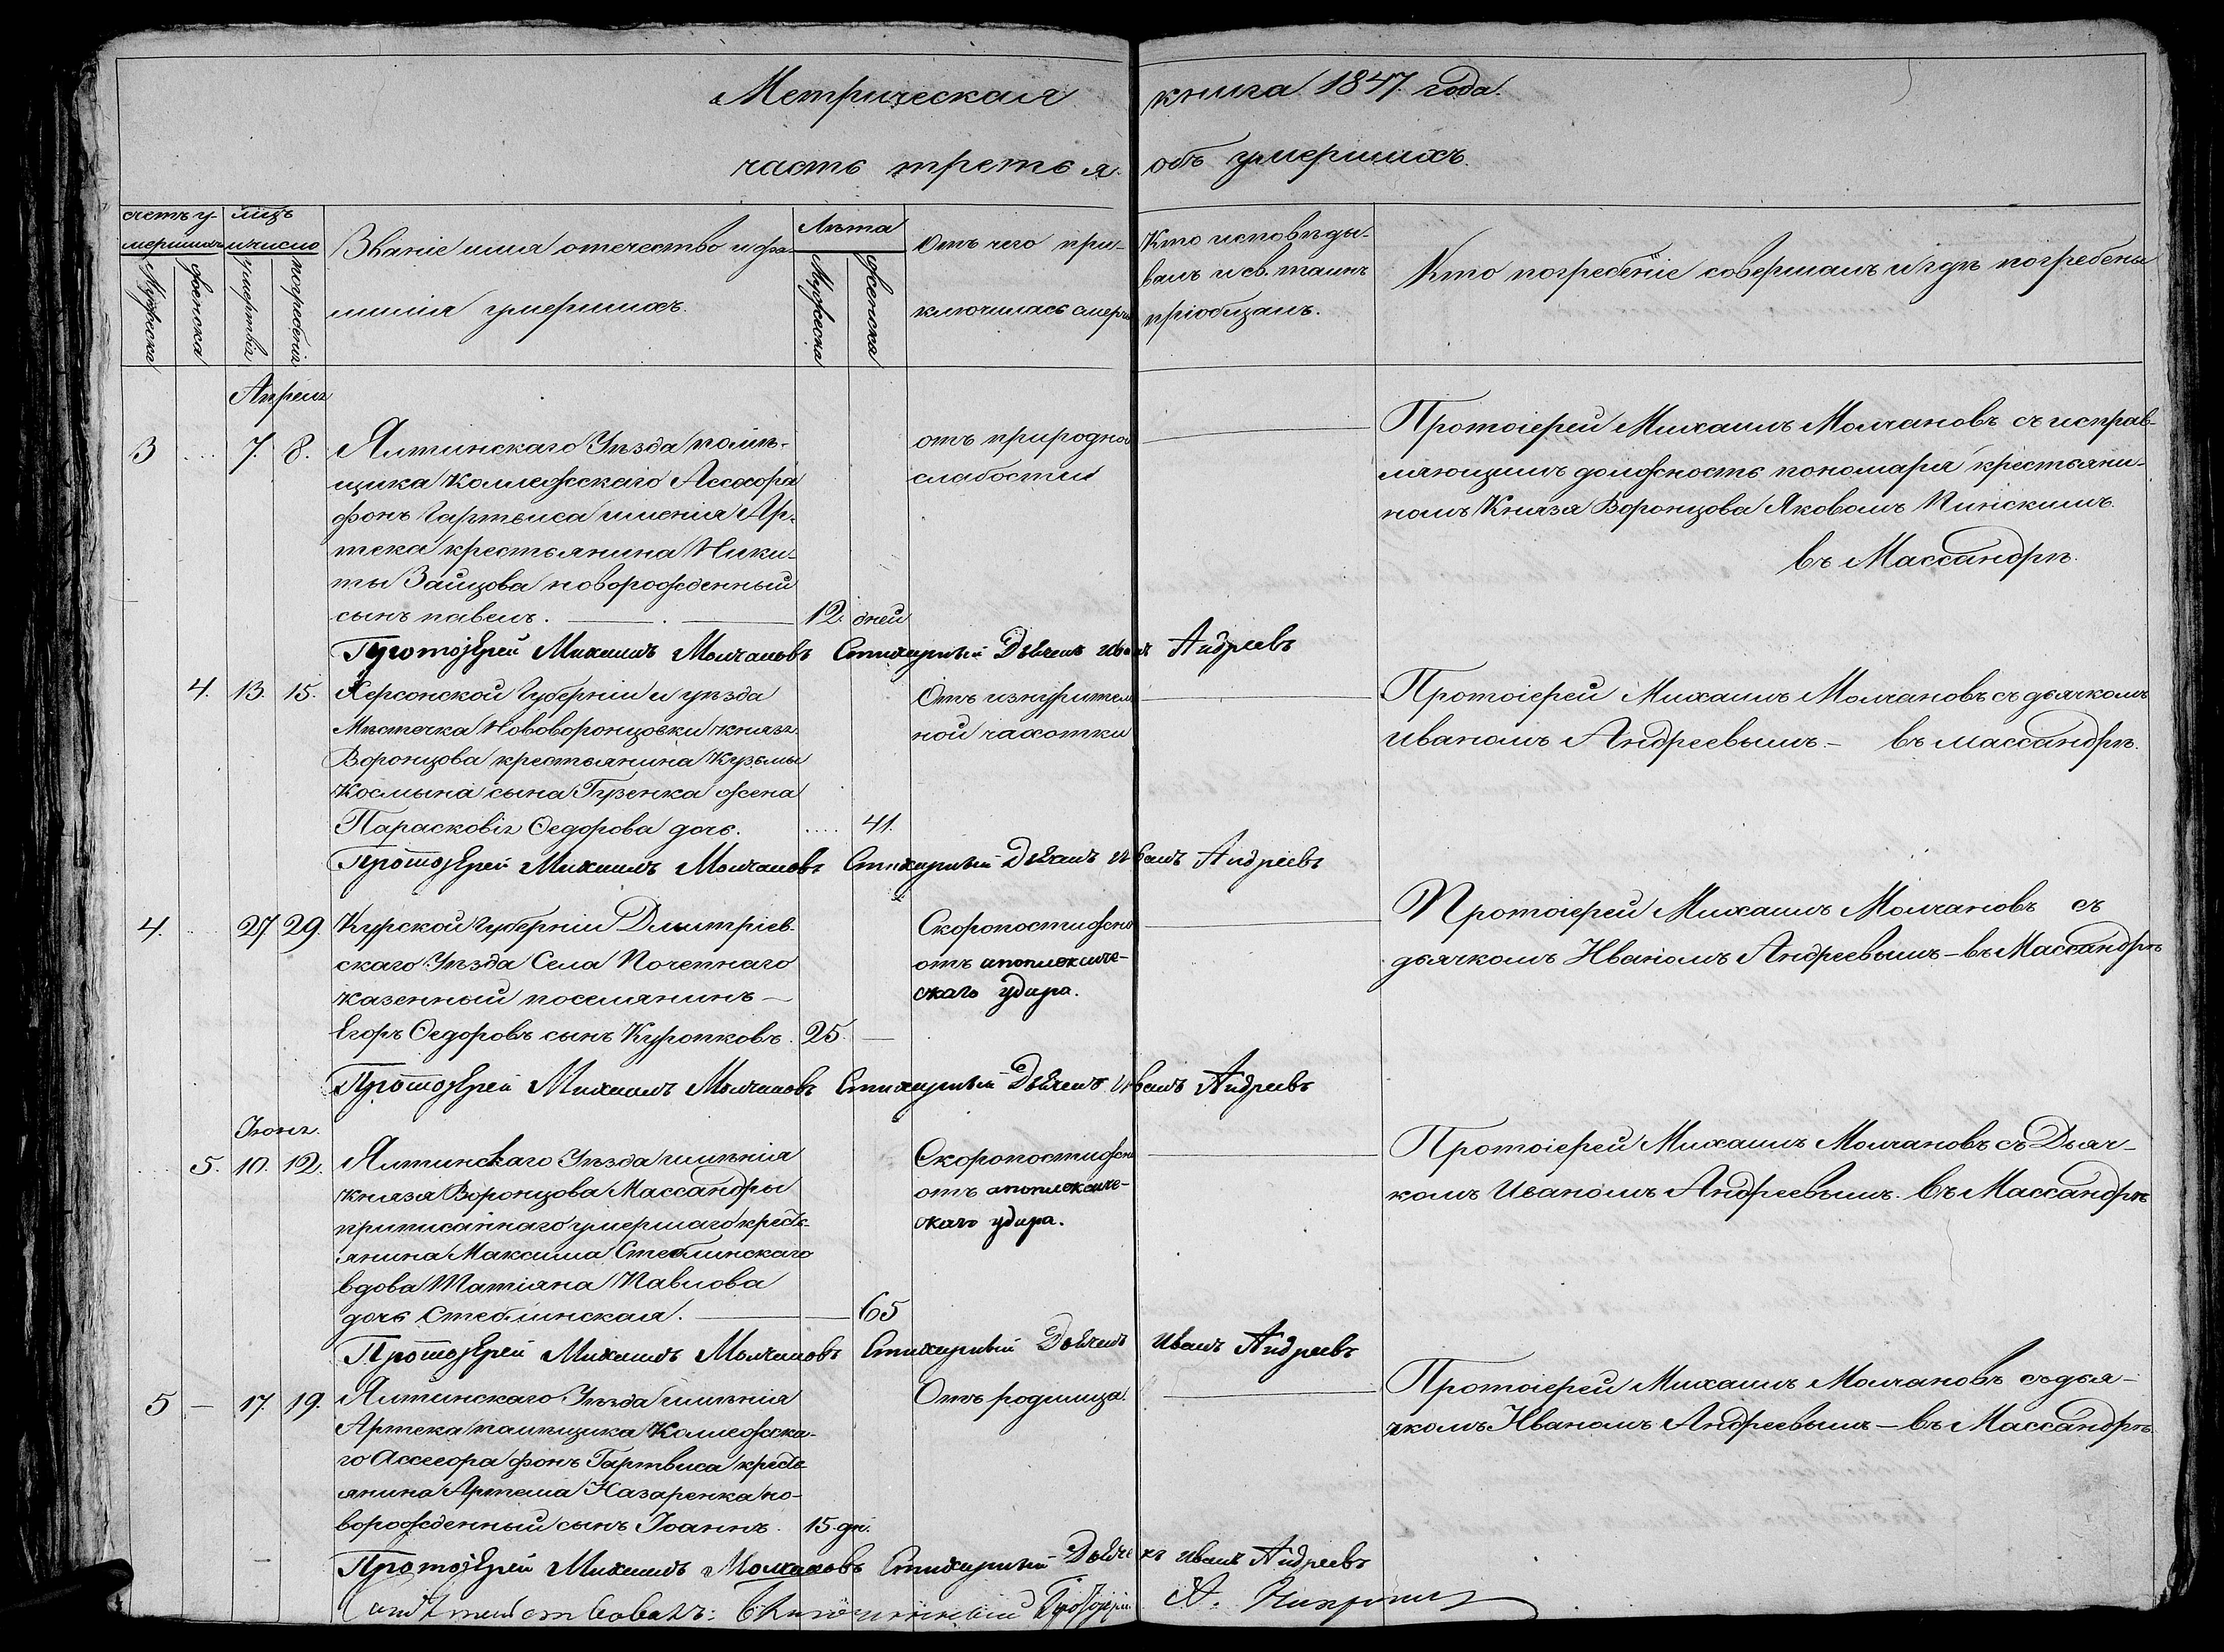 Метрическая книга 1847. года.
часть третья. объ умершихъ.
счетъ у-
мершихъ
Мужеска
женска
мѣсяцъ
и число
умертвія
погребенія
Званіе имя отечество и фа-
милія умершихъ.
Лѣта
Мужеска
женска
Отъ чего при-
ключилась смерть
Кто исповѣды-
валъ и св. таинъ
пріобщалъ.
Кто погребеніе совершалъ и гдѣ погребены
Апрель
3 .... 7. 8.
Ялтинскаго Уѣзда помѣ-
щика Коллежскаго Ассесора
фонъ Гартвиса имѣнія Ар-
тека крестьянина Ники-
ты Зайцова новорожденный
сынъ павелъ.
12. дней
отъ природной
слабости
Протоіерей Михаилъ Молчановъ съ исправ-
ляющимъ должность пономаря крестьяни-
номъ Князя Воронцова Яковомъ Пинскимъ.
въ Массандрѣ.
Протоіерей Михаилъ Молчановъ Стихарный Дьячекъ Иванъ Андреевъ
4. 13. 15.
Херсонской Губерніи и уѣзда
Мѣстечка Нововоронцовки князя
Воронцова крестьянина Кузьмы
Космына сына Гузенка жена
Парасковія Ѳедорова дочь.
.... 41.
Отъ изнурител
ной чахотки
Протоіерей Михаилъ Молчановъ съ дьячкомъ
Иваномъ Андреевымъ. – въ Массандрѣ.
Протоіерей Михаилъ Молчановъ Стихарный Дьячекъ Иванъ Андреевъ
4. 27 29.
Курской Губерніи Дмитріев-
скаго Уѣзда Села Почепнаго
казенный поселянинъ –
Егоръ Ѳедоровъ сынъ Куропковъ.
25. –
Скоропостижно
отъ апоплексиче-
скаго удара.
Протоіерей Михаилъ Молчановъ съ
дьячкомъ Иваномъ Андреевымъ – въ Массандрѣ
Протоіерей Михаилъ Молчановъ Стихарный Дьячекъ Иванъ Андреевъ
Іюнь.
.... 5. 10. 12.
Ялтинскаго Уѣзда имѣнія
Князя Воронцова Массандры
приписаннаго умершаго кресть-
янина Максима Стеблинскаго
вдова Татіяна Павлова
дочь Стеблинская.
65
Скоропостижно
отъ апоплексиче-
скаго удара.
Протоіерей Михаилъ Молчановъ съ Дьяч-
комъ Иваномъ Андреевымъ. въ Массандрѣ
Протоіерей Михаилъ Молчановъ Стихарный Дьячекъ Иванъ Андреевъ
5 – 17. 19.
Ялтинскаго Уѣзда имѣнія
Артека помѣщика Коллежска-
го Ассесора фонъ Гартвиса кресть
янина Артема Назаренка но-
ворожденный сынъ Іоаннъ.
15. дн.
Отъ родимца.
Протоіерей Михаилъ Молчановъ съ дья-
чкомъ Иваномъ Андреевымъ – въ Массандрѣ.
Протоіерей Михаилъ Молчановъ Стихарный Дьячекъ Иванъ Андреевъ
Протоіерей